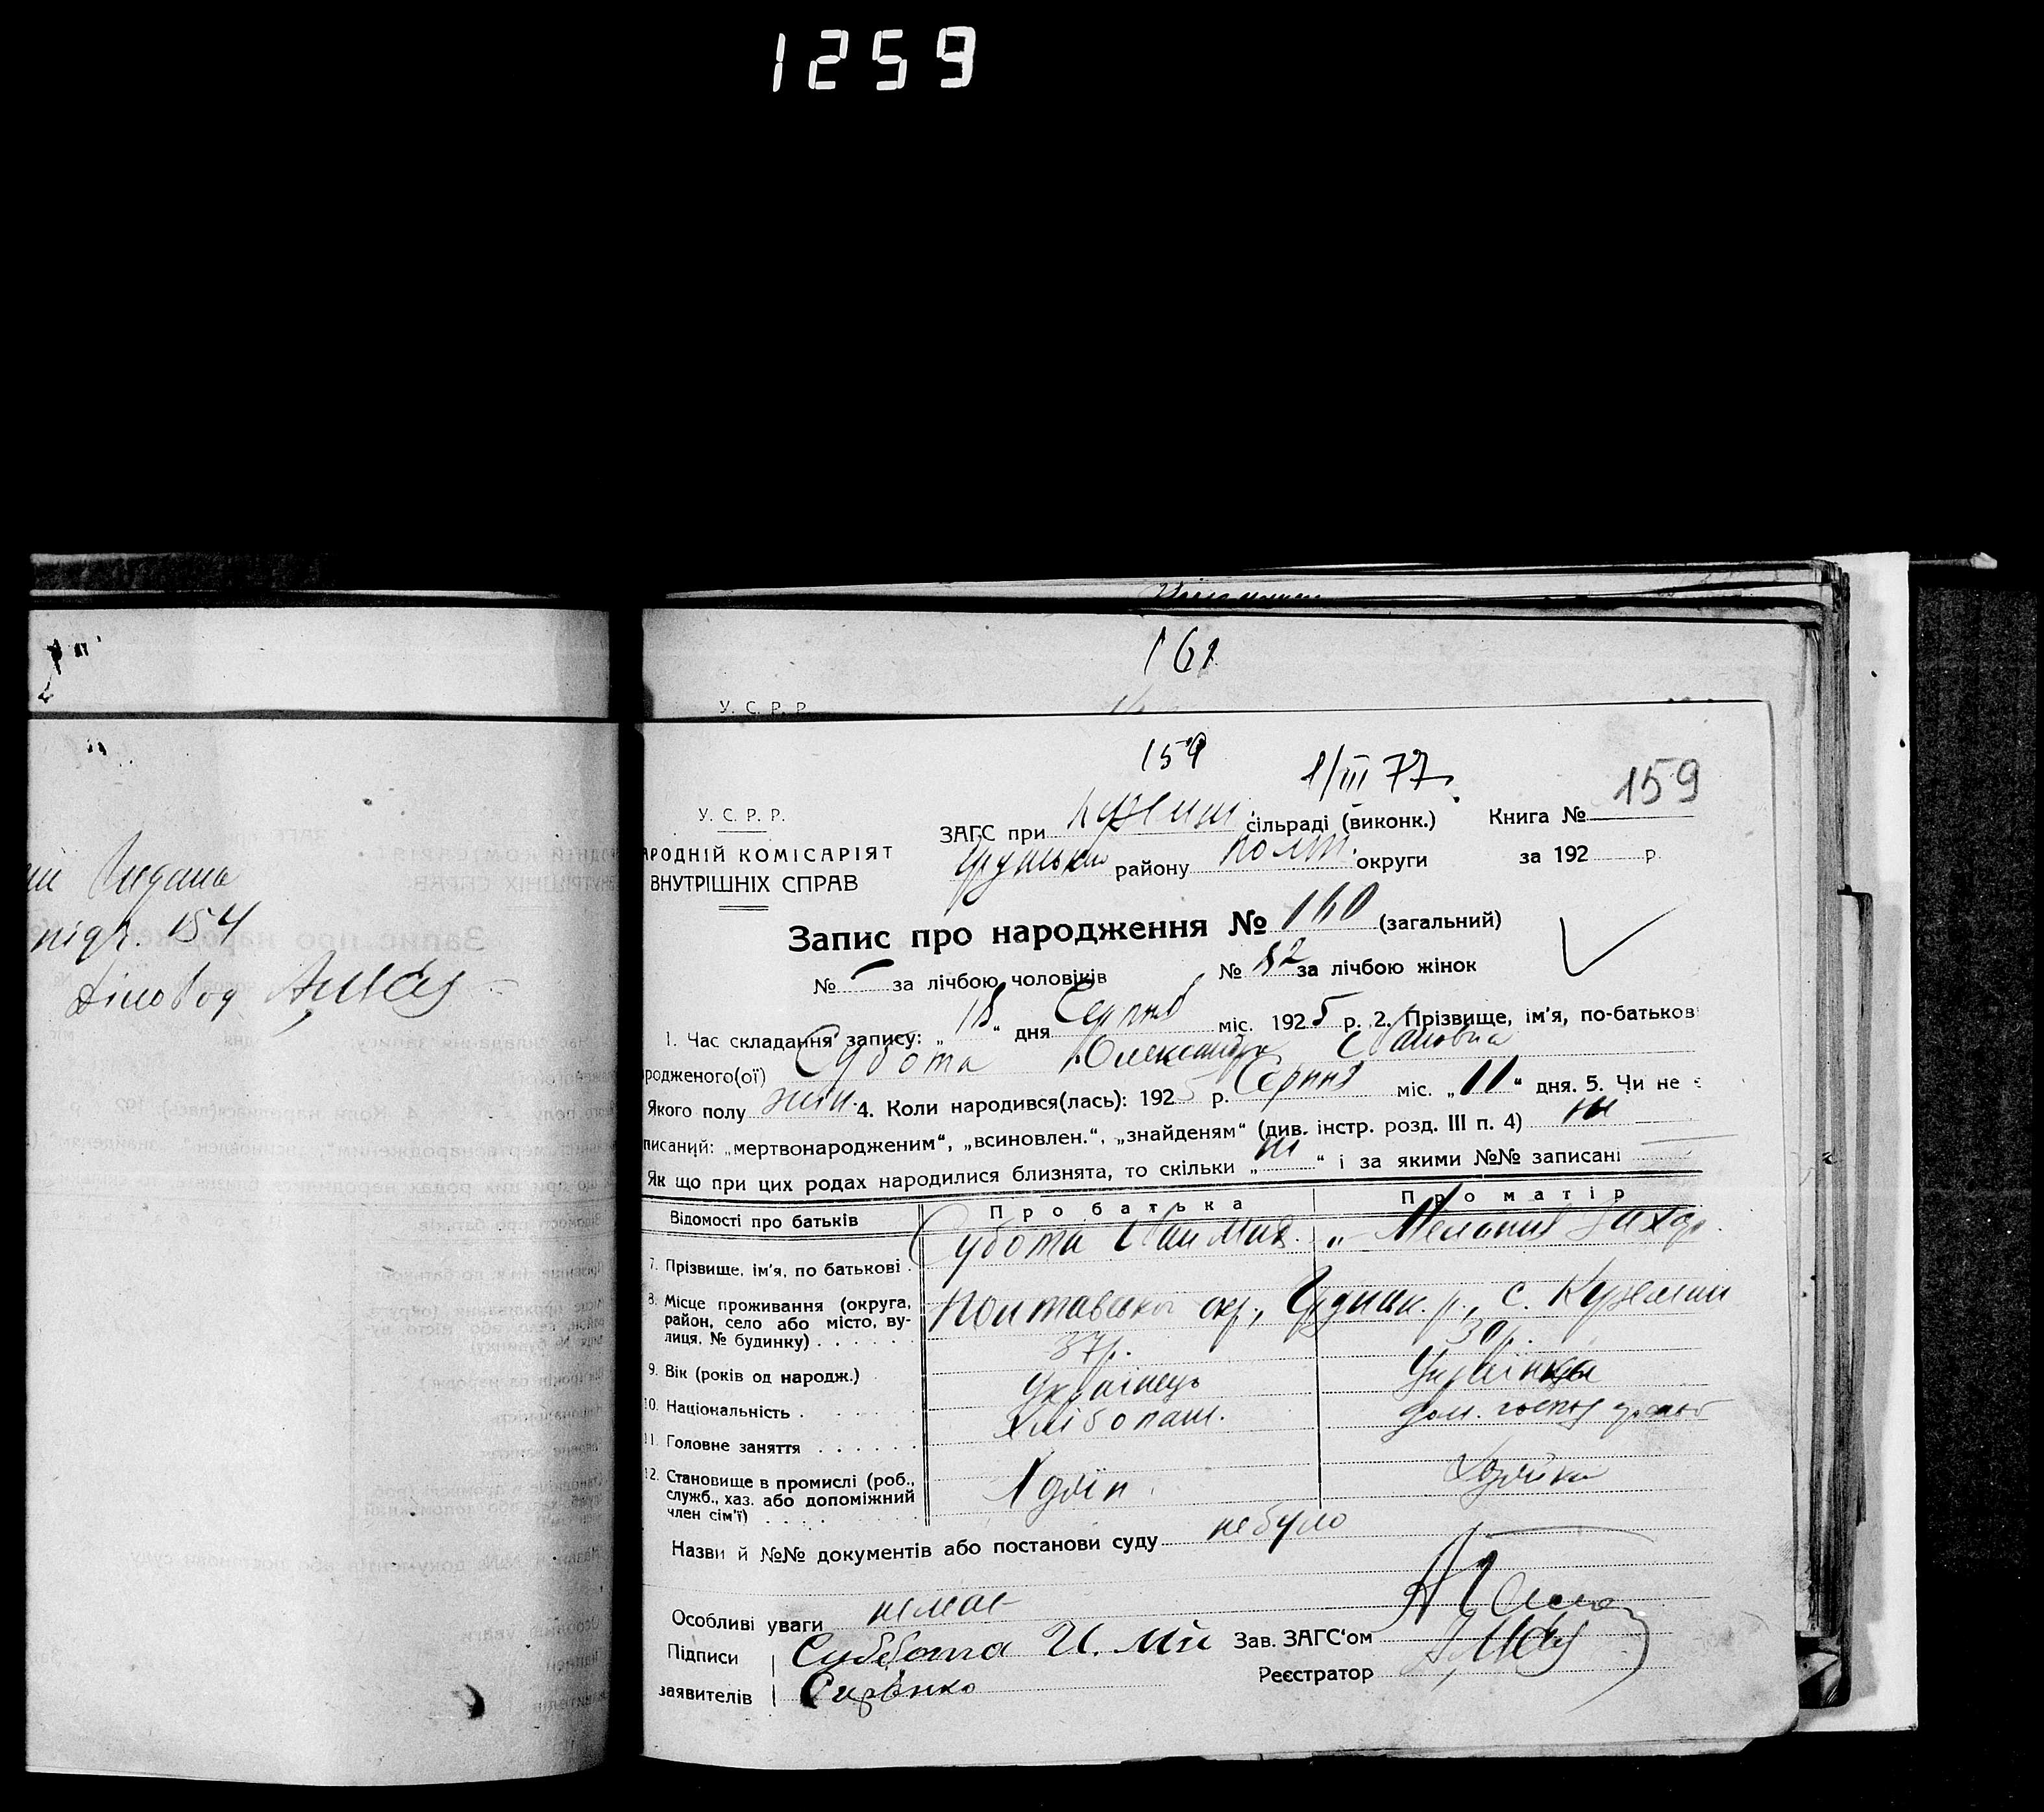 1259
161
У. С. Р. Р.
159
1/III 77
159
У. С. Р. Р.
ЗАГС при Кужелин. сільраді (виконк.) Книга №
АРОДНІЙ КОМІСАРІЯТ
ВНУТРІШНІХ СПРАВ
району Полт. округи за 192 р.
Запис про народження № 160 (загальний)
№ – за лічбою чоловіків № 82 за лічбою жінок
1. Час складання запису: „18“ дня Серпня міс. 1925 р. 2. Прізвище, ім'я, по-батькові
родженого(ої) Субота Олександра Івановна
Якого полу жін. 4. Коли народився(лась): 1925 р. Серпня міс. „11“ дня. 5. Чи не є
писаний: „мертвонародженим“, „всиновлен.“, „знайденям“ (див. інстр. розд. III п. 4) ні
Як що при цих родах народилися близнята, то скільки „ні“ і за якими №№ записані
Відомості про батьків Про батька Про матір
7. Прізвище, ім'я, по батькові Субота Іван Мих. „ Меланія Захар.
8. Місце проживання (округа, район, село або місто, ву-
лиця, № будинку) Полтавської окр., Грунськ. р., с. Кужелин
9. Вік (років од народж.) 37 р. 30 р.
10. Національність Українець Українка
11. Головне заняття Хлібопаш. дом. господ
12. Становище в промислі (роб.,
служб., хаз. або допоміжний
член сім'ї) Хазяйка
Назви й №№ документів або постанови суду не було
Особливі уваги немає
Підписи Суббота И. Ми Зав. ЗАГС'ом
заявителів Реєстратор
Видана
підг. 154
Діловод